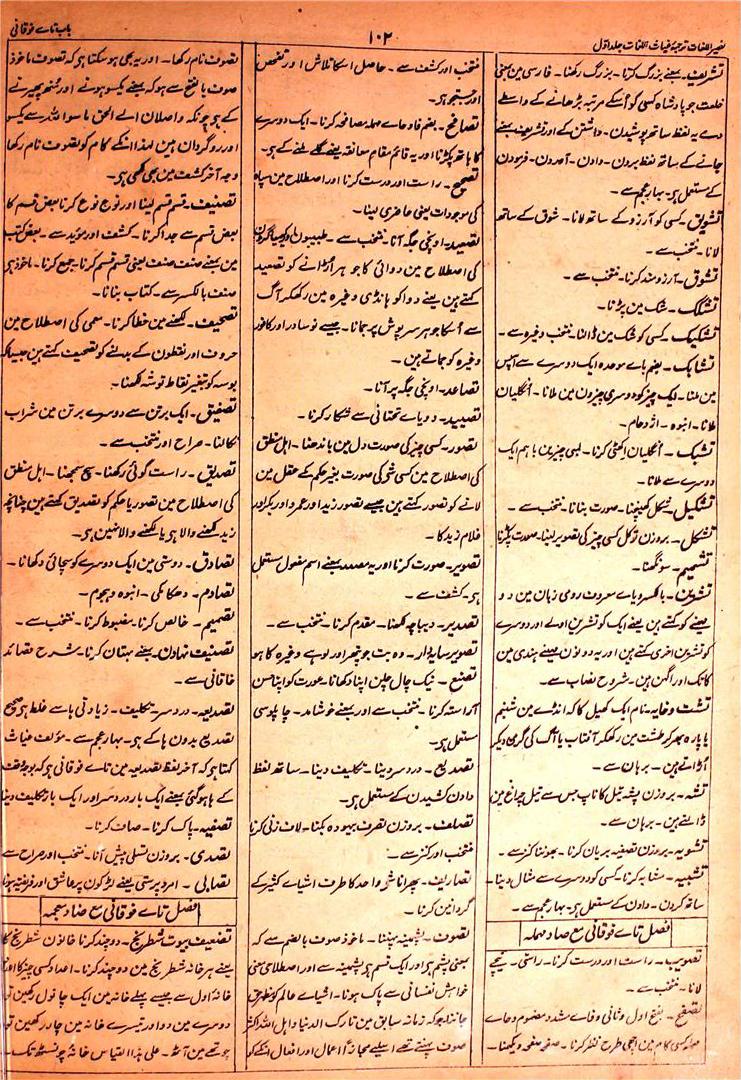 نصیر اللغات ترجمۂ غیاث اللغات جلد اول
۱۰۲
باب تاے فوقانی
تشریف۔ بمعنے بزرگ کرنا۔ بزرگ رکھنا۔ فارسی مین بمعنی
خلعت جو پادشاہ کسی کو اُسکے مرتبہ بڑھانے کے واسطے
دے یہ لفظ ساتھ پوشیدن۔ داشتن کے اور تشریف بمعنے
جانے کے ساتھ لفظ بردن۔ دادن۔ آمدن۔ فرمودن
کے مستعمل ہی۔ بہار عجم سے۔
تشویق۔ کسی کو آرزو کے ساتھ لانا۔ شوق کے ساتھ
لانا۔ منتخب سے۔
تشوق۔ آرزومند کرنا۔ منتخب سے۔
تشکک۔ شک مین پڑنا۔
تشکیک۔ کسی کو شک مین ڈالنا۔ منتخب وغیرہ سے۔
تشابک۔ بضم باے موحدہ ایک دوسرے سے آپس
مین ملنا۔ ایک چیز کو دوسری چیزون مین ملانا۔ انگلیان
ملانا۔ انبوہ۔ ازدحام۔
تشبک۔ انگلیان اکھٹی کرنا۔ لمبی چیزین باہم ایک
دوسرے سے ملانا۔
تشکیل۔ شکل کھینچنا۔ صورت بنانا۔ منتخب سے۔
تشکل۔ بروزن توکل کسی چیز کی تصویر لینا۔ صورت پکڑنا
تشمیم۔ سونگھنا۔
تشرین۔ بالکسر و یاے معروف رومی زبان مین دو
مہینے کو کہتے ہین یعنے ایک کو تشرین اولے اور دوسرے
کو تشرین اخری کہتے ہین اور یہ دونون مہینے ہندی مین
کاتک اور اگہن ہین۔ شروح نصاب سے۔
تشت و خایہ۔ نام ایک کھیل کا کہ انڈے مین شبنم
یا پارہ بھر کر طشت مین رکھکر آفتاب یا آگ کی گرمی دیکر
اُڑاتے ہین۔ برہان سے۔
تشہ۔ بروزن پشہ تیل کا ناپ جس سے تیل چراغ مین
ڈالتے ہین۔ برہان سے۔
تشویہ۔ بروزن تصفیہ بریان کرنا۔ بھوننا کنز سے۔
تشبیہ۔ مشابہ کرنا۔ کسی کو دوسرے سے مثال دینا۔
ساتھ کردن۔ دادن کے مستعمل ہی۔ بہار عجم سے۔
فصل تاے فوقانی مع صاد مہملہ
تصویب۔ راست اور درست کرنا۔ راستی۔ نیچے
لانا۔ منتخب سے۔
تصفح۔ بفتح اول و ثانی و فاے مشدد مضموم و حاے
مہملہ کسی کام مین اچھی طرح نظر کرنا۔ صفحہ صفحہ دیکھنا۔
منتخب اور کشف سے۔ حاصل اسکا تلاش اور تفحص
اور جستجو ہی۔
تصافح۔ بضم فا و حاے مہملہ مصافحہ کرنا۔ ایک دوسرے
کا ہاتھ پکڑنا اور یہ قائم مقام معانقہ یعنے گلے ملنے کے ہی۔
تصحیح۔ راست اور درست کرنا اور اصطلاح مین سپاہ
کی موجودات یعنی حاضری لینا۔
تصعید۔ اونچی جگہ آنا۔ منتخب سے۔ طبیبون اور کیمیاگرون
کی اصطلاح مین دوائی کا جوہر اُڑانے کو تصعید
کہتے ہین یعنے دوا کو ہانڈی وغیرہ مین رکھکر آگ
سے اُسکا جوہر سرپوش پر جمانا۔ جیسے نوسادر اور کافور
وغیرہ کو جماتے ہین۔
تصاعد۔ اونچی جگہ پر آنا۔
تصیید۔ دو یاے تحتانی سے شکار کرنا۔
تصور۔ کسی چیز کی صورت دل مین باندھنا۔ اہل منطق
کی اصطلاح مین کسی شے کی صورت بغیر حکم کے عقل مین
لانے کو تصور کہتے ہین جیسے تصور زید اور عمرو اور بکر اور
غلام زید کا۔
تصویر۔ صورت کرنا اور یہ مصدر بمعنے اسم مفعول مستعمل
ہی۔ کشف سے۔
تصدیر۔ دیباچہ لکھنا۔ مقدم کرنا۔ منتخب سے۔
تصویر سایہ دار۔ وہ بت جو پتھر اور لوہے وغیرہ کا ہو
تصنع۔ نیک چال چلن اپنا دکھانا۔ عورت کو اپنا حسن
آراستہ کرنا۔ منتخب سے اور بمعنے خوشامد۔ چاپلوسی
مستعمل ہی۔
تصدیع۔ درد سر دینا۔ تکلیف دینا۔ ساتھ لفظ
دادن کشیدن کے مستعمل ہی۔
تصلف۔ بروزن تصرف بیہودہ بکنا۔ لاف زنی کرنا
منتخب اور کنز سے۔
تصاریف۔ پھرانا شے واحد کا طرف اشیاے کثیر کے
گردانین کرنا۔
تصوف۔ پشمینہ پہننا۔ ماخوذ صوف بالضم سے کہ
بمعنی پشم ہی اور ایک قسم ہی پشمینہ سے اور اصطلاحی معنی
خواہش نفسانی سے پاک ہونا۔ اشیاے عالم کو مظہر حق
جاننا چونکہ زمانہ سابق مین تارک الدنیا و اہل اللہ اکثر
صوف پہنتے تھے اسلیے مجازاً اعمال اور افعال انکے کو
تصوف نام رکھا۔ اور یہ بھی ہو سکتا ہی کہ تصوف ماخوذ
صوف بالفتح سے ہو کہ بمعنے یکسو ہونے اور منھ پھیرنے
کے ہی چونکہ واصلان الے الحق ماسوا اللہ سے یکسو
اور روگردان ہین لہذا انکے کام کو تصوف نام رکھا
وجہ آخر کشف مین بھی لکھی ہی۔
تصنیف۔ قسم قسم لینا اور نوع نوع کرنا بعض قسم کا
بعض قسم سے جدا کرنا۔ کشف اور مؤید سے۔ بعض کتب
مین بمعنے صنف صنف یعنی قسم قسم کرنا۔ جمع کرنا۔ ماخوذ ہی
صنف بالکسر سے۔ کتاب بنانا۔
تصحیف۔ لکھنے مین خطا کرنا۔ معمی کی اصطلاح مین
حروف اور نقطون کے بدلنے کو تصحیف کہتے ہین جیسا کہ
بوسہ کو بتغیر نقاط توشہ لکھنا۔
تصفیق۔ ایک برتن سے دوسرے برتن مین شراب
نکالنا۔ صراح اور منتخب سے۔
تصدیق۔ راست گوئی رکھنا۔ سچ سمجھنا۔ اہل منطق
کی اصطلاح مین تصور با حکم کو تصدیق کہتے ہین چنانچہ
زید لکھنے والا ہی یا لکھنے والا نہین ہی۔
تصادق۔ دوستی مین ایک دوسرے کو سچائی دکھانا۔
تصادم۔ دھکا مکی۔ انبوہ و ہجوم۔
تصمیم۔ خالص کرنا۔ مضبوط کرنا۔ منتخب سے۔
تصنیف نہادن۔ بمعنے بہتان کرنا۔ شرح قصائد
خاقانی سے۔
تصدیعہ۔ درد سر۔ تکلیف۔ زیادتی ہا سے غلط ہی صحیح
تصدیع بدون ہا کے ہی۔ بہار عجم سے۔ مؤلف غیاث
کہتا ہی کہ آخر لفظ تصدیعہ مین تاے فوقانی ہی کہ بوجہ وقف
کے ہا ہو گئی بمعنے ایک بار درد سر اور ایک بار تکلیف دینا
تصفیہ۔ پاک کرنا۔ صاف کرنا۔
تصدی۔ بروزن تسلی پیش آنا۔ منتخب اور صراح سے
تصابی۔ امرد پرستی یعنے لڑکون پر عاشق اور فریفتہ ہونا
فصل تاے فوقانی مع ضاد معجمہ
تضعیف بیوت شطرنج۔ دو چند کرنا خانون شطرنج کا
یعنے ہر خانہ شطرنج مین دو چند کرنا۔ اعداد کسی چیز کا اوپر
خانۂ اول سے جیسے پہلے خانہ مین ایک چانول رکھین تو
دوسرے مین دو اور تیسرے خانہ مین چار رکھین تو
چوتھے مین آٹھ۔ علی ہذا القیاس خانۂ چونسٹھ تک۔